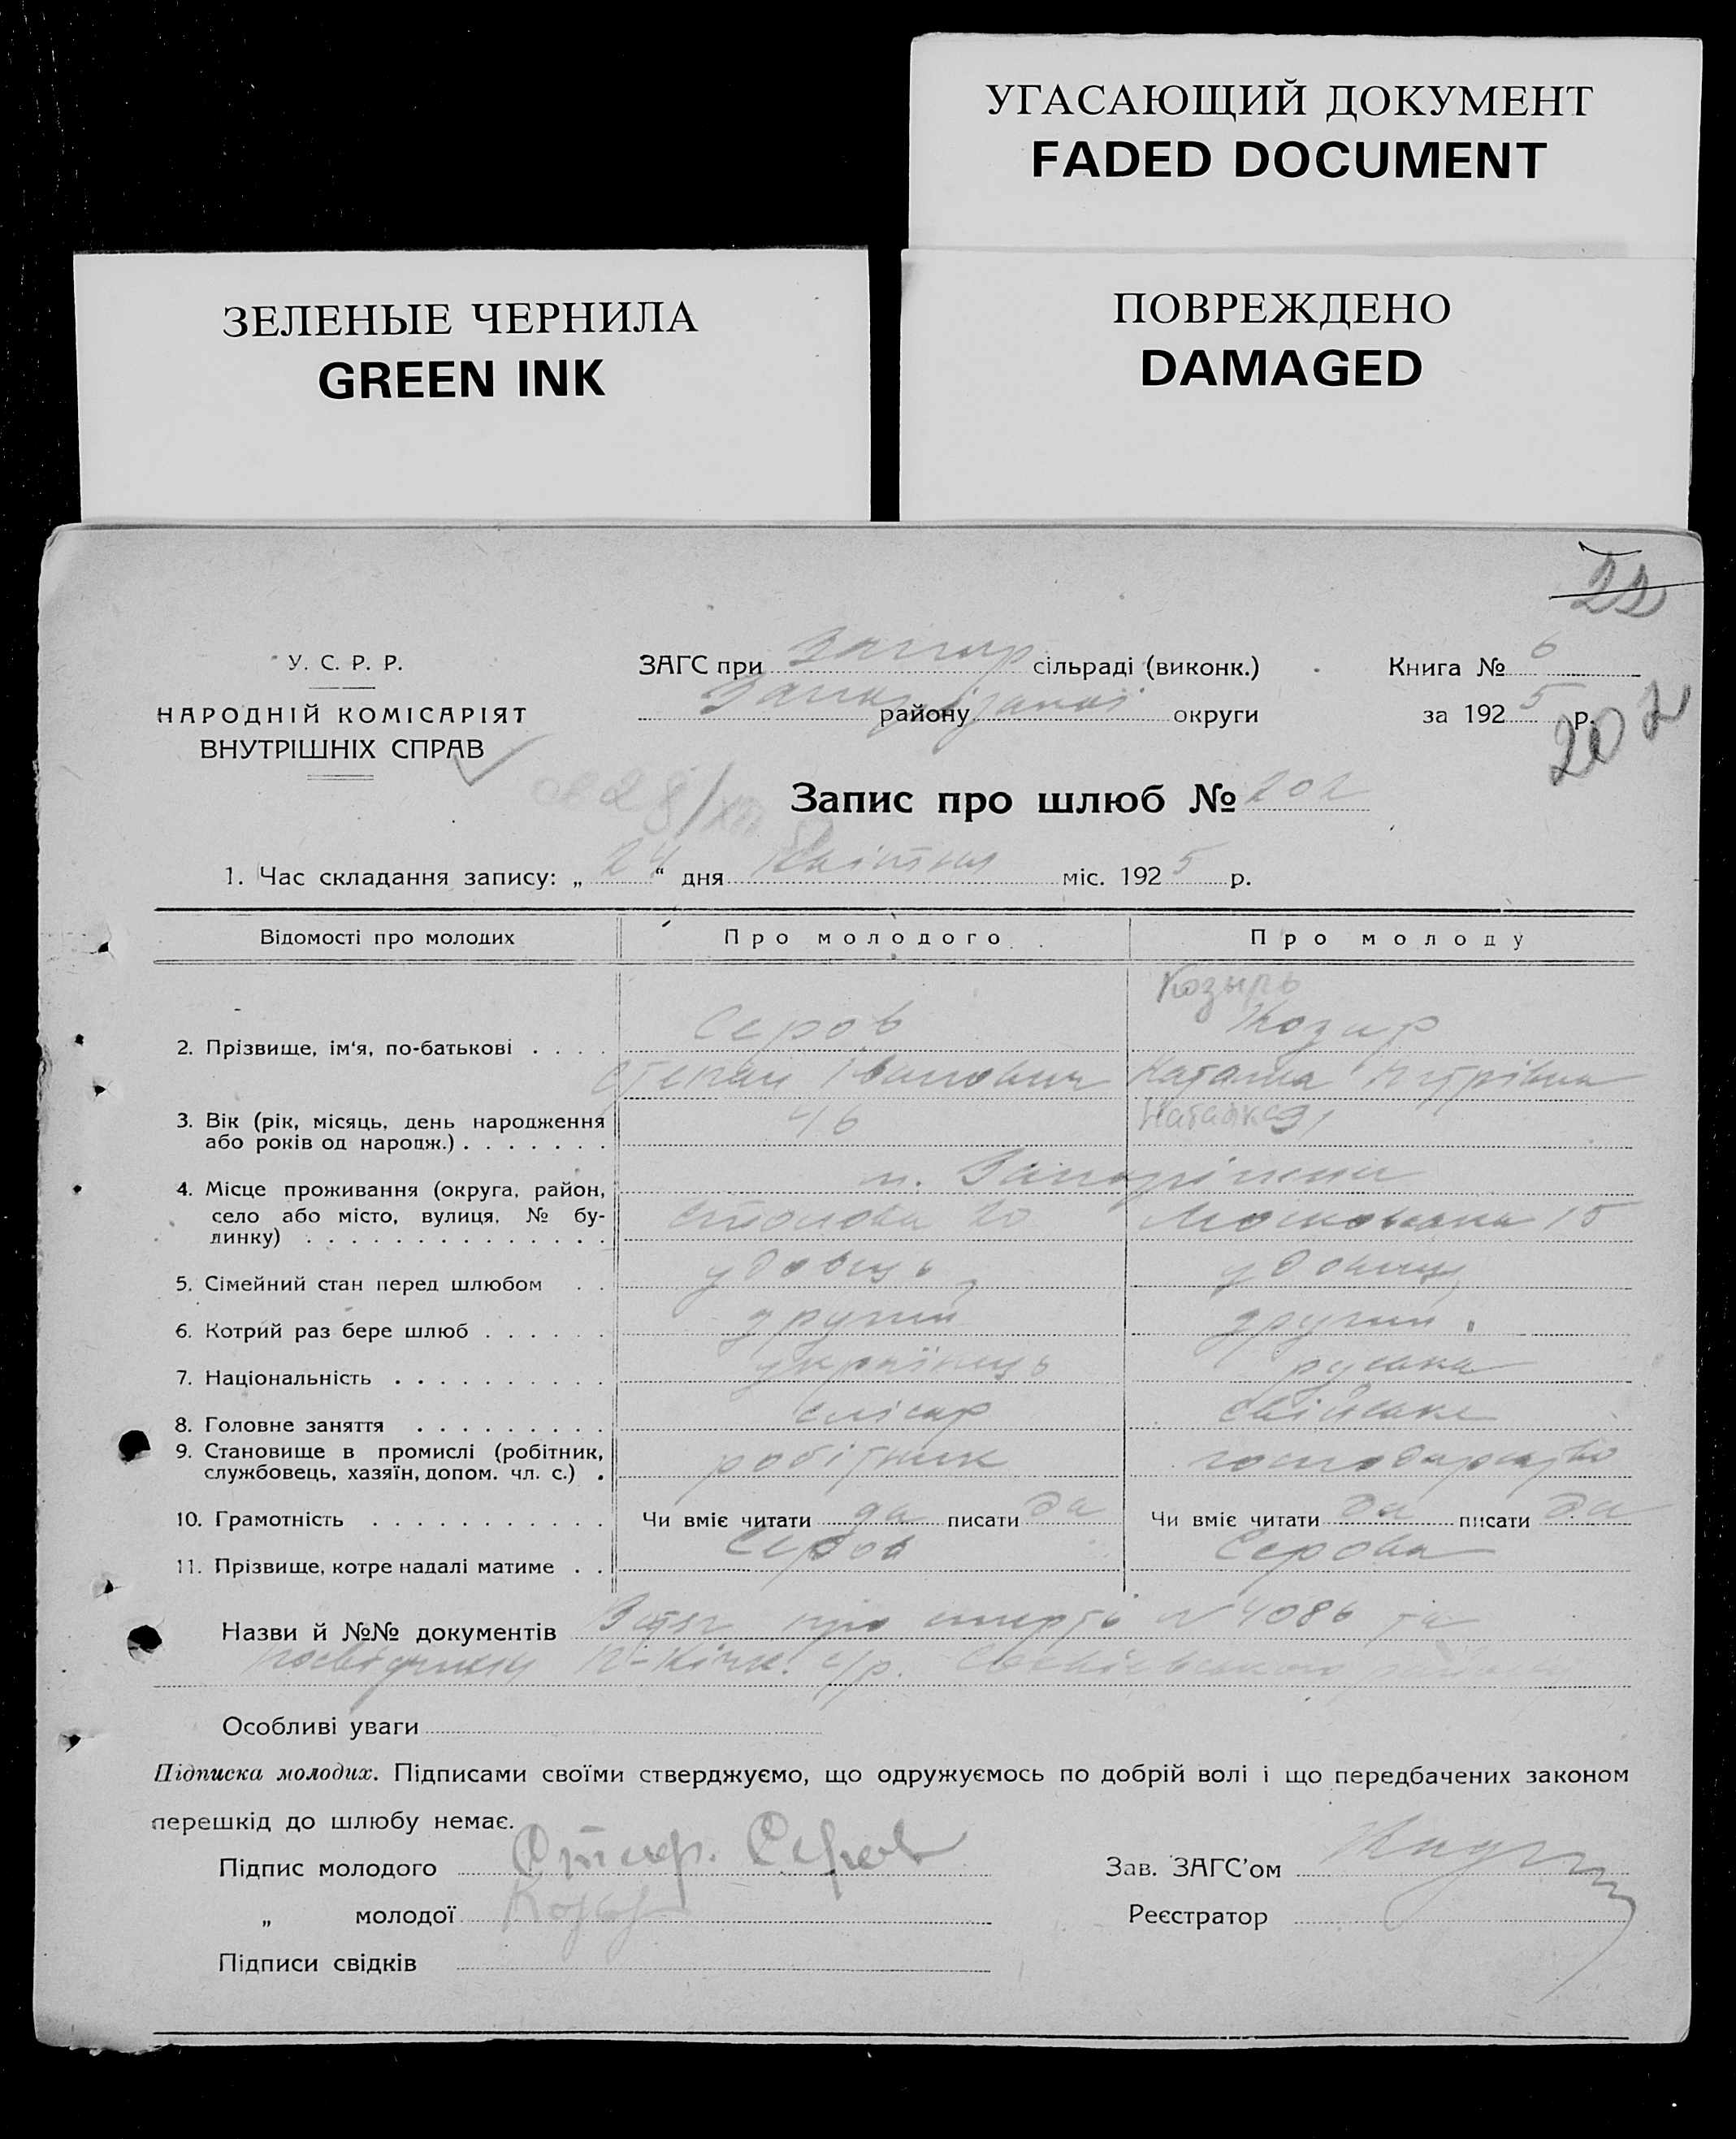 УГАСАЮЩИЙ ДОКУМЕНТ
FADED DOCUMENT
ЗЕЛЕНЫЕ ЧЕРНИЛА
GREEN INK
ПОВРЕЖДЕНО
DAMAGED
22
У. С. Р. Р.
НАРОДНІЙ КОМІСАРІЯТ
ВНУТРІШНІХ СПРАВ
ЗАГС при Запор сільраді (виконк.)
району округи
Книга № 6
за 1925 р.
202
Запис про шлюб № 202
1. Час складання запису: „24“ дня Квітня міс. 1925 р.
Відомості про молодих Про молодого Про молоду
Козырь
2. Прізвище, ім'я, по-батькові Серов Козир
Степан Іванович Наталка Петрівна
3. Вік (рік, місяць, день народження або років од народж.) 46 Наталка 31
4. Місце проживання (округа, район, село або місто, вулиця, № будинку) м. Запоріжжя
20 Московська 15
5. Сімейний стан перед шлюбом удовець удовиця
6. Котрий раз бере шлюб другий другий
7. Національність українець руська
8. Головне заняття слісар хатнє
9. Становище в промислі (робітник, службовець, хазяїн, допом. чл. с.) робітник господарство
10. Грамотність Чи вміє читати да писати да Чи вміє читати да писати да
11. Прізвище, котре надалі матиме Серов Серова
Назви й №№ документів Витяг про смерть № 4086 та
посвідчення с/р.
Особливі уваги
Підписка молодих. Підписами своїми стверджуємо, що одружуємось по добрій волі і що передбачених законом
перешкід до шлюбу немає.
Підпис молодого Серов
„ молодої Козир
Зав. ЗАГС'ом
Реєстратор
Підписи свідків